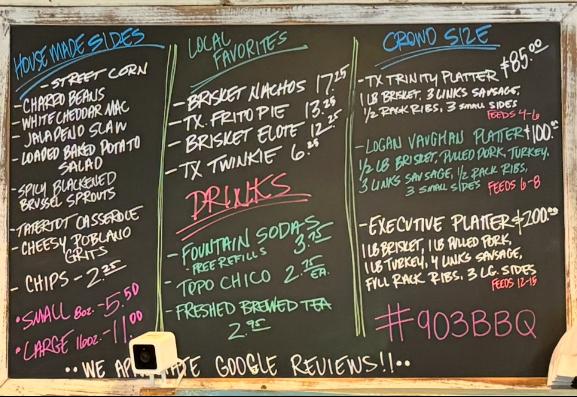 HOUSE MADE SIDES
- STREET CORN
- CHARRO BEANS
- WHITE CHEDDAR MAC
- JALAPENO SLAW
- LOADED BAKED POTATO
SALAD
- SPICY BLACKENED
BRUSSEL SPROUTS
- TATERTOT CASSEROLE
- CHEESY POBLANO
GRITS
- CHIPS - 2.25
• SMALL 8oz. - 5.50
• LARGE 16oz. - 11.00
LOCAL
FAVORITES
- BRISKET NACHOS 17.25
- TX. FRITO PIE 13.25
- BRISKET ELOTE 12.25
- TX TWINKIE 6.25
DRINKS
- FOUNTAIN SODAS
FREE REFILLS 3.75
- TOPO CHICO 2.75 EA.
- FRESHED BREWED TEA
2.95
CROWD SIZE
- TX TRINITY PLATTER $85.00
1 LB BRISKET, 3 LINKS SAUSAGE,
1/2 RACK RIBS, 3 SMALL SIDES
FEEDS 4-6
- LOGAN VAUGHAN PLATTER $100.00
1/2 LB BRISKET, PULLED PORK, TURKEY,
3 LINKS SAUSAGE, 1/2 RACK RIBS,
3 SMALL SIDES FEEDS 6-8
- EXECUTIVE PLATTER $200.00
1 LB BRISKET, 1 LB PULLED PORK,
1 LB TURKEY, 4 LINKS SAUSAGE,
FULL RACK RIBS, 3 LG. SIDES
FEEDS 12-15
#903BBQ
•• WE GOOGLE REVIEWS!!••